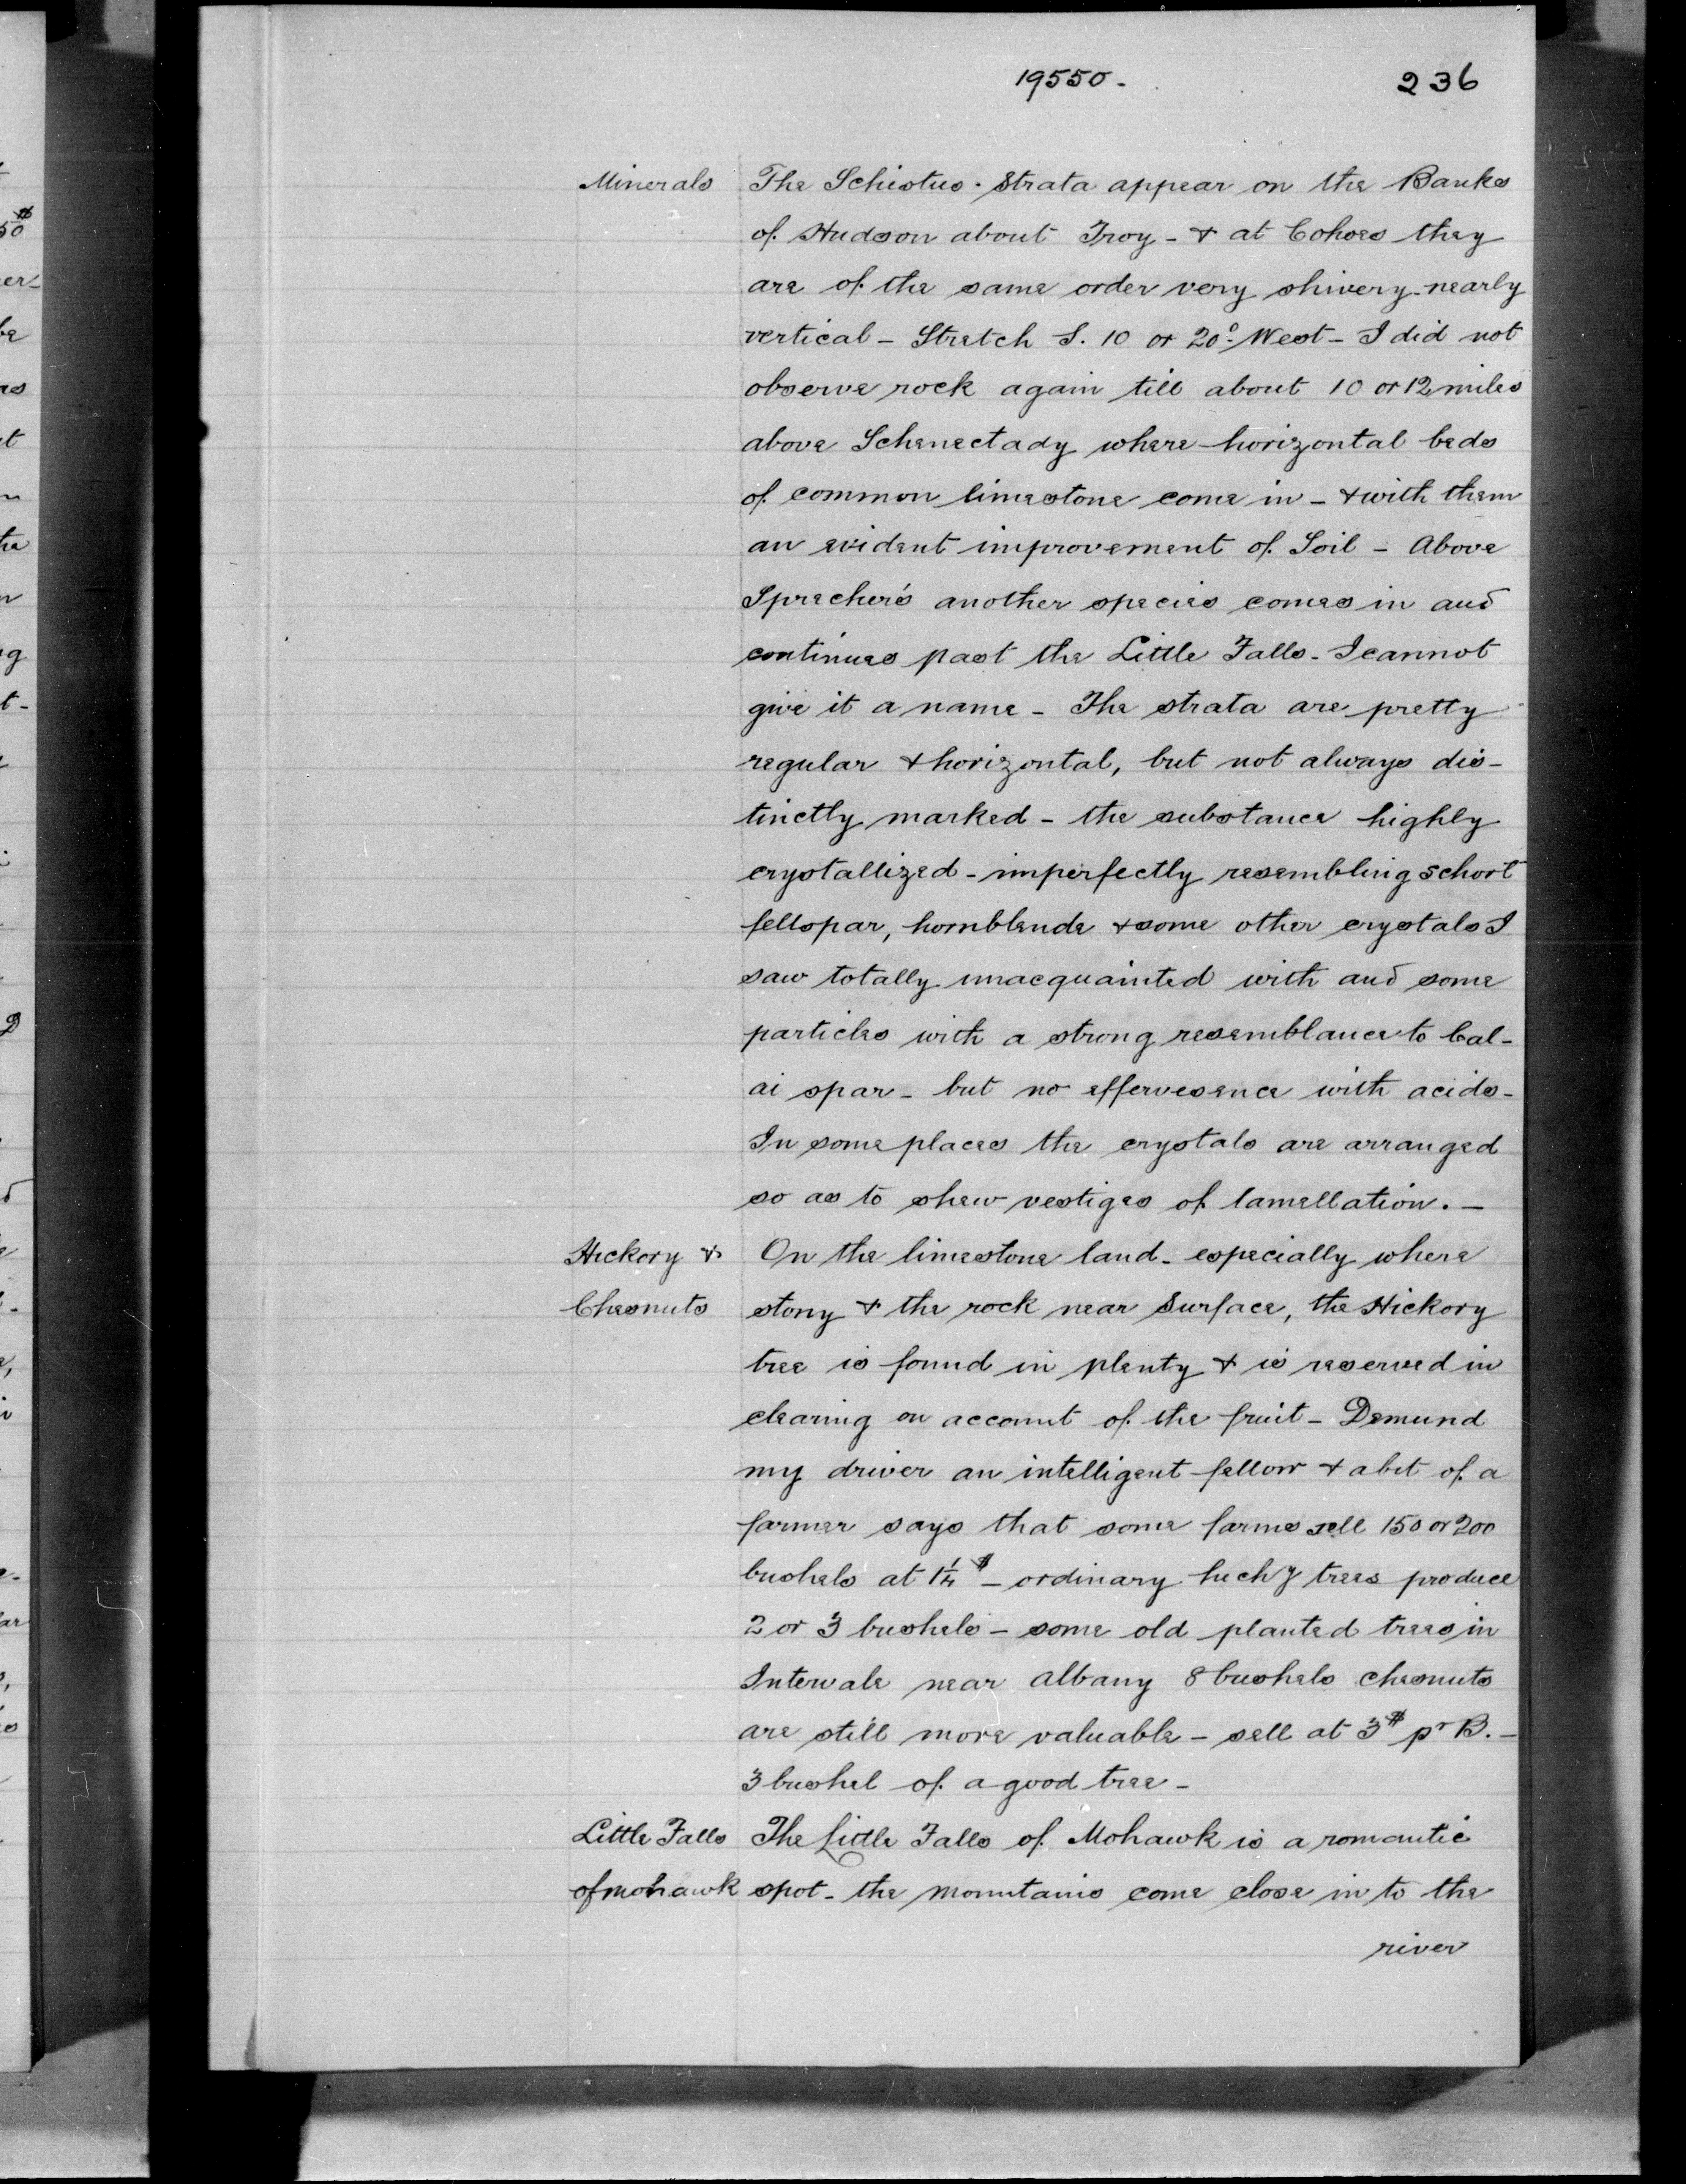 19550. 236
Minerals The Schistus. Strata appear on the Banks
of Hudson about Troy - & at Cohoes they
are of the same order very shivery - nearly
vertical - Stretch S. 10 or 20° West - I did not
observe rock again till about 10 or 12 miles
above Schenectady where horizontal beds
of common limestone come in - & with them
an evident improvement of Soil - Above
Sprecher's another species comes in and
continues past the Little Falls - I cannot
give it a name - The strata are pretty
regular & horizontal, but not always dis-
tinctly marked - the substance highly
crystallized - imperfectly resembling schort
fellspar, hornblende & some other crystals I
saw totally unacquainted with and some
particles with a strong resemblance to Cal-
ai spar - but no effervesence with acids -
In some places the crystals are arranged
so as to shew vestiges of lamellation. -
Hickory & On the limestone land - especially where
Chesnuts stony & the rock near Surface, the Hickory
tree is found in plenty & is reserved in
clearing on account of the fruit - Demund
my driver an intelligent fellow & a bit of a
farmer says that some farms sell 150 or 200
bushels at 1¼ $ - ordinary trees produce
2 or 3 bushels - some old planted trees in
Intervale near Albany 8 bushels chesnuts
are still more valuable - sell at 3$ pr B. -
3 bushel of a good tree -
Little Falls The Little Falls of Mohawk is a romantic
of mohawk spot - the mountains come close in to the
river